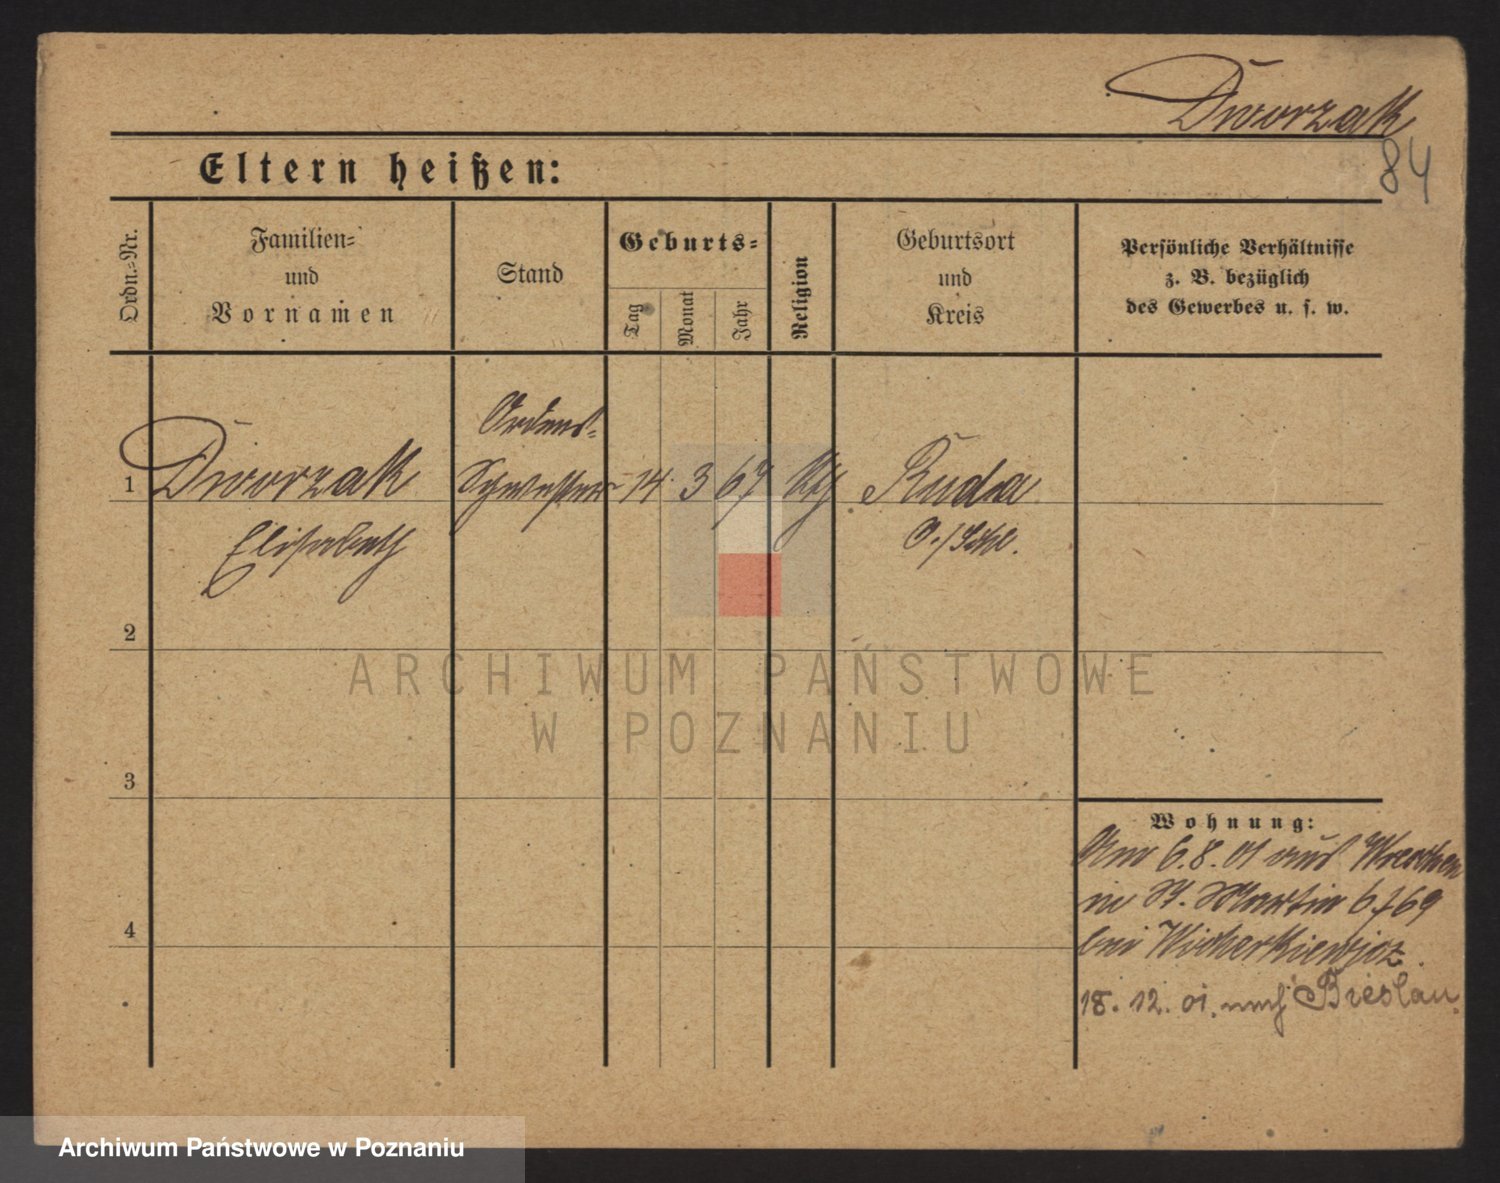 Dworzak
84
Eltern heißen:
Ordn.-Nr.
Familien-
und
Vornamen
Stand
Geburts-
Tag
Monat
Jahr
Religion
Geburtsort
und
Kreis
Persönliche Verhältnisse
z. B. bezüglich
des Gewerbes u. s. w.
Ordens-
1 Dworzak Schwester 14 3 67 Kth Ruda
Elisabeth O./Schl.
2
ARCHIWUM PAŃSTWOWE
W POZNANIU
3
Wohnung:
Am 6.8.01 aus
in St. Martin 6769
bei Wicherkiewicz.
4
18. 12. 01. nach Breslau.
Archiwum Państwowe w Poznaniu